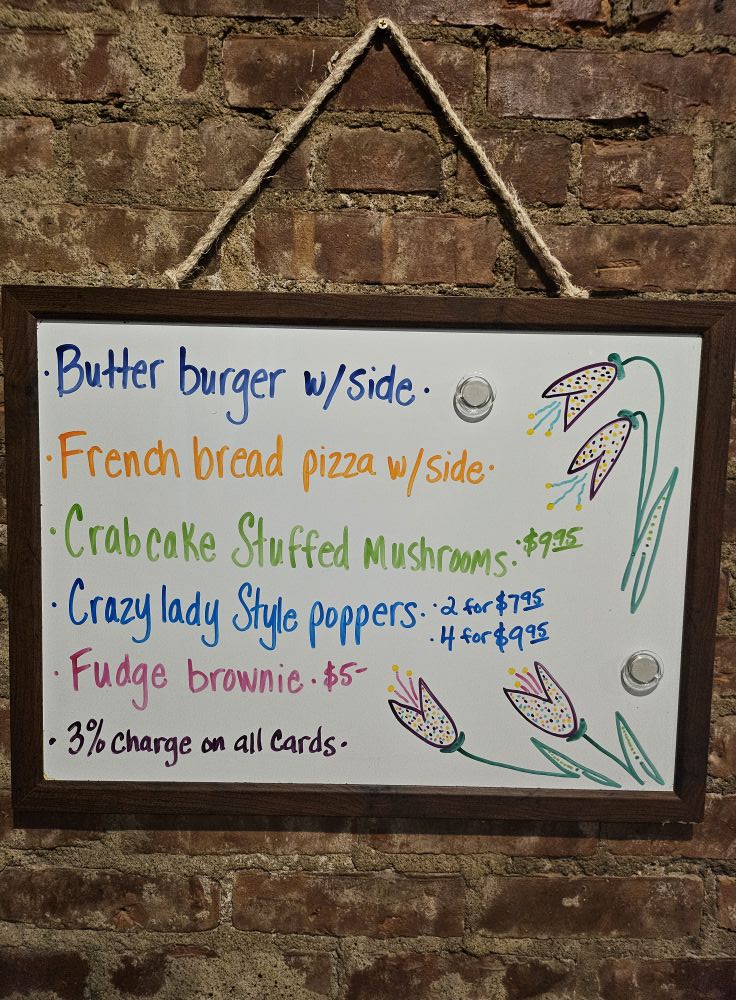 · Butter burger w/side ·
· French bread pizza w/side ·
· Crabcake Stuffed Mushrooms. · $9.95
· Crazy lady Style poppers. · 2 for $7.95
· 4 for $9.95
· Fudge brownie · $5-
· 3% charge on all cards ·